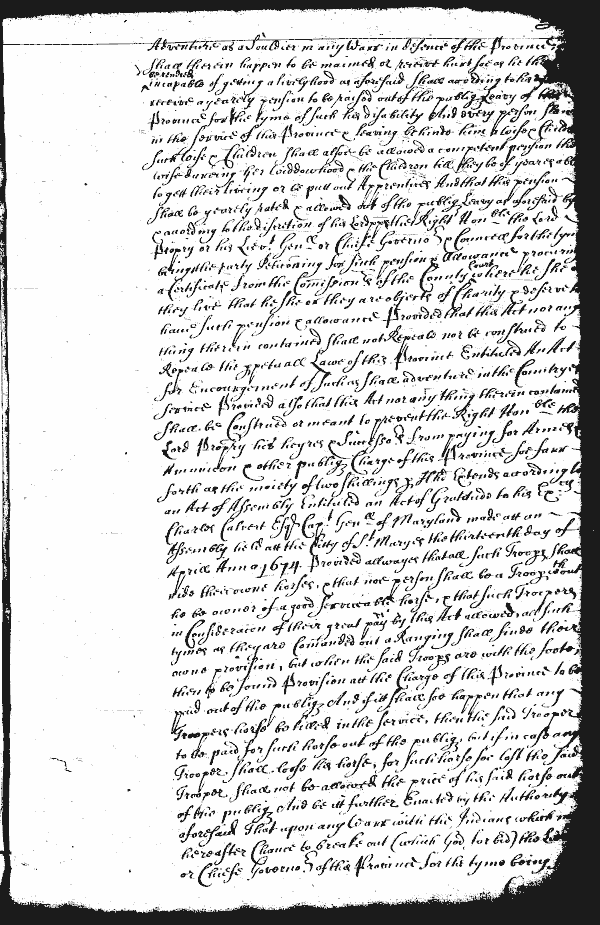 Adventure as a Souldier in any Warr in defence of the Province
Shall therein happen to be maimed or receive hurt soe as he the
rendred
incapable of getting a livelyhood as aforesaid Shall according to his
receive a yearely pension to be raised out of the publiq Leavy of this
Province for the tyme of such his disability And every person Slaine
in the Service of this Province & leaving behinde him a Wife & Children
Such Wife & Children shall alsoe be allowed a competent pension the
Wife dureing her widdowhood & the Children till they be of yeares able
to gett their liveing or be putt out Apprentices And that this pension
Shall be yearely rated & allowed out of the publiq Leavy as aforesaid by
& according to the discretion of his Lordpp the Right Honble the Lord
Propry or his Lievt Genll or Cheife Governor & Councell for the tyme
being the party Peticoning for such pension & allowance procuring
Court
a Certificate from the Comissioners of the County where he She or
they live that he she or they are objects of Charity & deserve to
have such pension & allowance Provided that this Act nor any
thing therein contained shall not Repeale nor be construed to
Repeale the ppetuall Lawe of this Province Entituled An Act
for Encouragement of Such as shall adventure in the Countryes
Service Provided also that this Act nor any thing therein contained
Shall be Construed or meant to prevent the Right Honble the
Lord Propry his heyres & Successors from paying for Armes
Amunicon & other publiq Charge of this Province soe farr
forth as the moiety of two shillings p hhd Extends according to
an Act of Assembly Entituled an Act of Gratitude to his Excy
Charles Calvert Esqr Capt Genll of Maryland made att an
Assembly held att the Citty of St Maryes the thirteenth day of
Aprill Anno 1674. Provided allwayes that all such Troops shall
ride their owne horses, & that noe person shall be a Trooper without
he be owner of a good serviceable horse, & that such Troopers
in Consideracon of their great pay by this Act allowed, att such
tymes as they are Comanded out a Ranging shall finde their
owne provision, but when the said Troops are with the foote
then to be found Provision att the Charge of this Province to be
paid out of the publiq And if itt shall soe happen that any
Troopers horse be killed in the service, then the said Trooper
to be paid for such horse out of the publiq, but if in case any
Trooper shall loose his horse, for such horse soe lost the said
Trooper shall not be allowed the price of his said horse out
of the publiq And be itt further Enacted by the Authority
aforesaid That upon any Warr with the Indians which may
hereafter Chance to breake out (which God forbid) the
or Cheife Governor of this Province for the tyme being